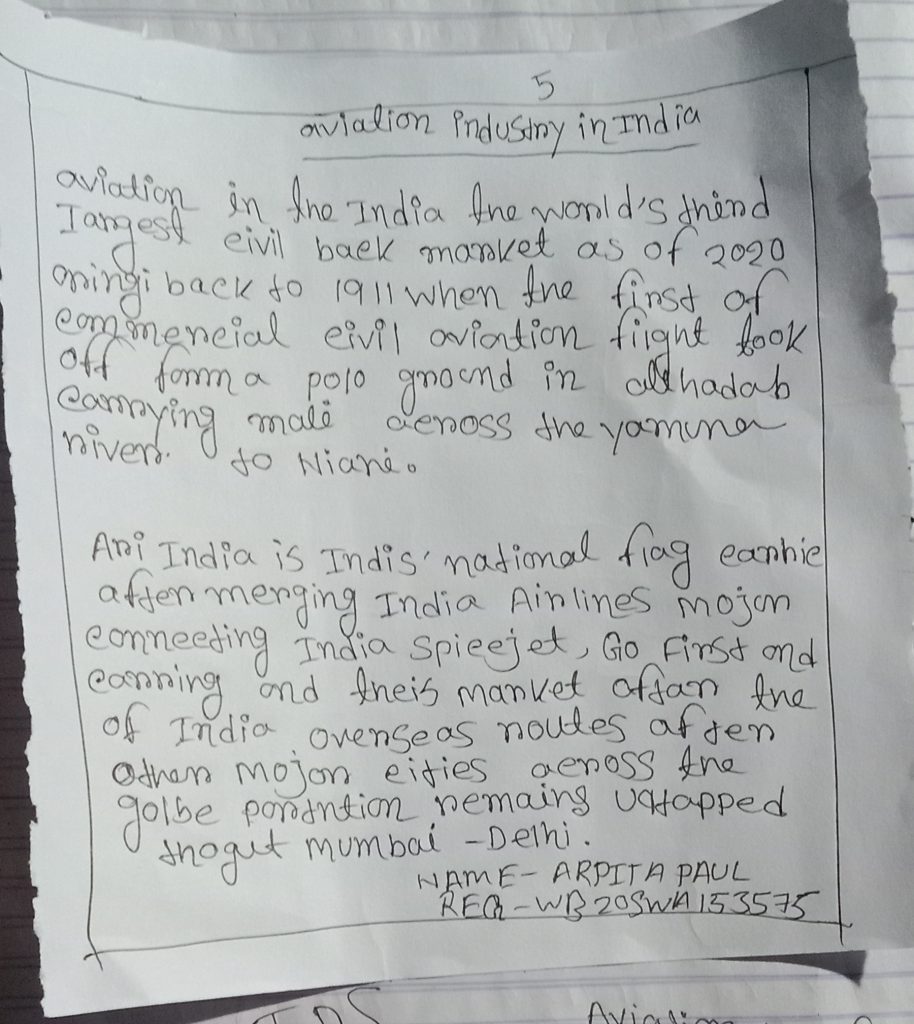 5
aviation industry in India
aviation in the India the world's third
largest civil back market as of 2020
oringi back to 1911 when the first of
commercial civil aviation flight took
off form a polo groend in allhadab
carrying mali across the yamuna
river. to Niani.
Ari India is Indis' national flag carrhie
after merging India Airlines mojor
connecting India Spicejet, Go First and
carring and theis market affar the
of India overseas routes after
other mojor cities across the
golbe remains
thogut mumbai - Delhi.
NAME - ARPITA PAUL
REG - WB20SWA153575